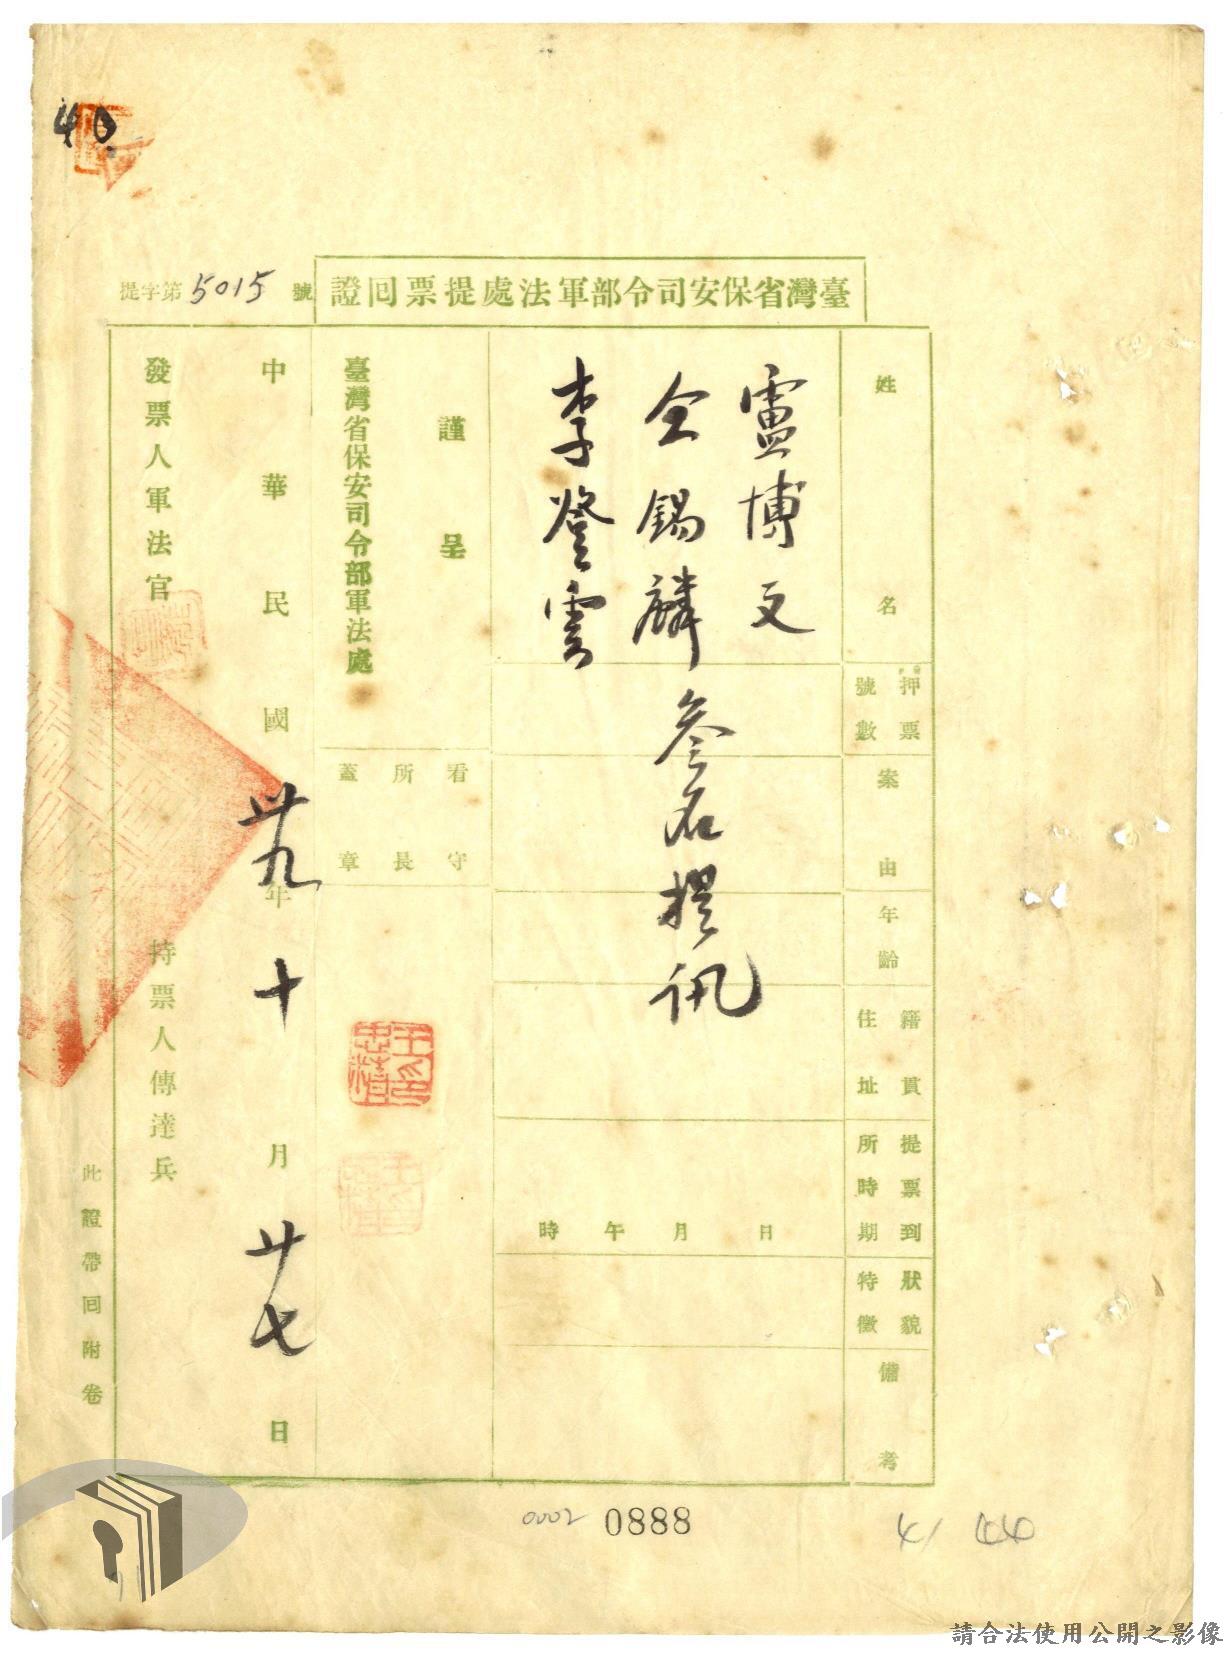 40
臺灣省保安司令部軍法處提票回證
提字第5015號
姓名
押票號數
案由
年齡
籍貫住址
提票到所時期
狀貌特徵
備考
盧博文
仝錫麟
李登雲
叁名提訊
日月午時
謹呈
臺灣省保安司令部軍法處
看守所長蓋章
中華民國卅九年十月廿七日
發票人軍法官
持票人傳達兵
此證帶回附卷
0002 0888
41 44
請合法使用公開之影像